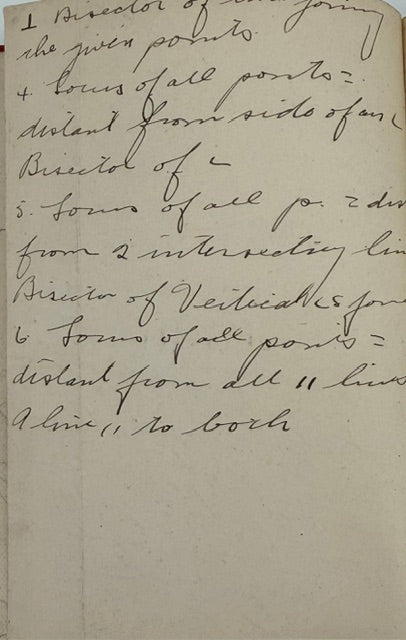 ⊥ Bisector of line joining
the given points.
4. Locus of all points =
distant from side of an ∠
Bisector of ∠
5. Locus of all p. = dis
from 2 intersecting lin
Bisector of Vertical ∠s for
6 Locus of all points =
distant from all || lines
A line || to both